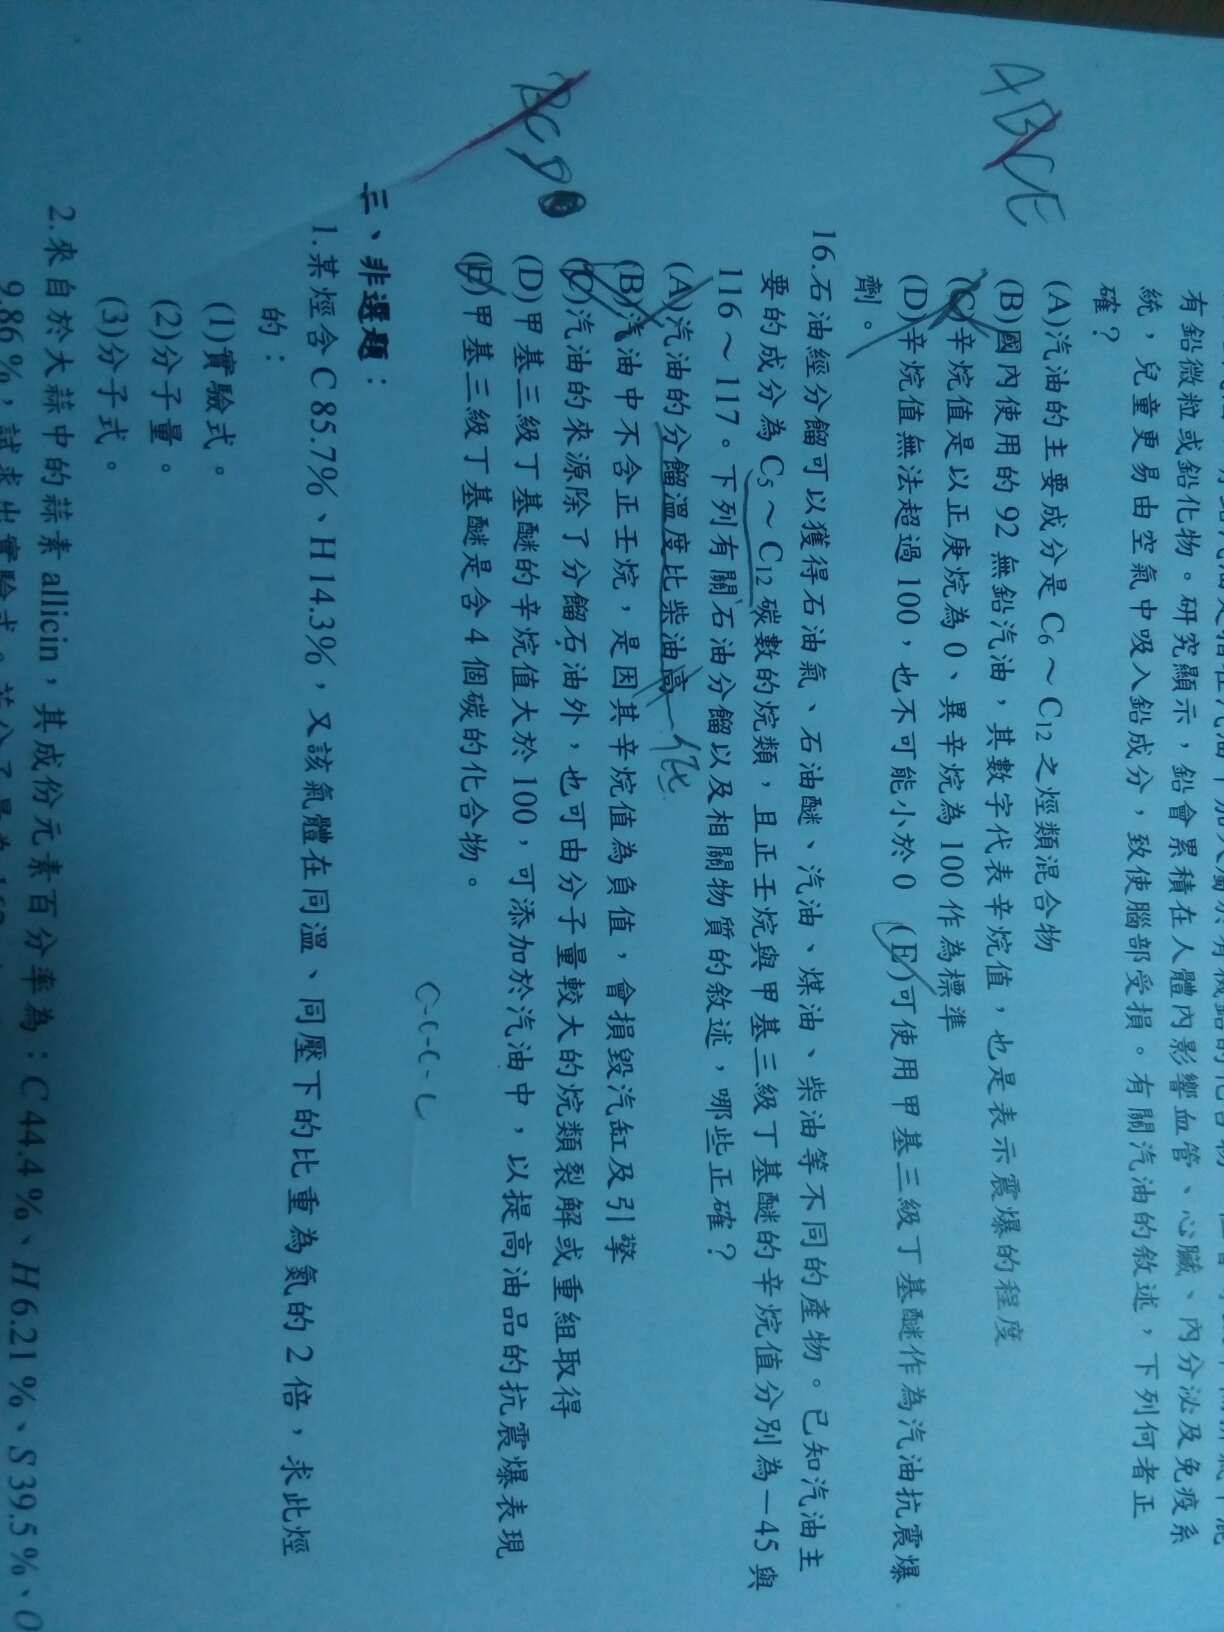 有鉛微粒或鉛化物。研究顯示，鉛會累積在人體內影響血管、心臟、內分泌及免疫系
統，兒童更易由空氣中吸入鉛成分，致使腦部受損。有關汽油的敘述，下列何者正
確？
ABCE
(A)汽油的主要成分是 C6～C12 之烴類混合物
(B)國內使用的 92 無鉛汽油，其數字代表辛烷值，也是表示震爆的程度
(C)辛烷值是以正庚烷為 0、異辛烷為 100 作為標準
(D)辛烷值無法超過 100，也不可能小於 0 (E)可使用甲基三級丁基醚作為汽油抗震爆
劑。
16.石油經分餾可以獲得石油氣、石油醚、汽油、煤油、柴油等不同的產物。已知汽油主
要的成分為 C5～C12 碳數的烷類，且正壬烷與甲基三級丁基醚的辛烷值分別為－45 與
116～117。下列有關石油分餾以及相關物質的敘述，哪些正確？
BCD
(A)汽油的分餾溫度比柴油高 低
(B)汽油中不含正壬烷，是因其辛烷值為負值，會損毀汽缸及引擎
(C)汽油的來源除了分餾石油外，也可由分子量較大的烷類裂解或重組取得
(D)甲基三級丁基醚的辛烷值大於 100，可添加於汽油中，以提高油品的抗震爆表現
(E)甲基三級丁基醚是含 4 個碳的化合物。
C-C-C-C
三、非選題：
1.某烴含 C 85.7%、H 14.3%，又該氣體在同溫、同壓下的比重為氮的 2 倍，求此烴
的：
(1)實驗式。
(2)分子量。
(3)分子式。
2.來自於大蒜中的蒜素 allicin，其成份元素百分率為：C 44.4%、H 6.21%、S 39.5%、O
9.86%，試求出實驗式。